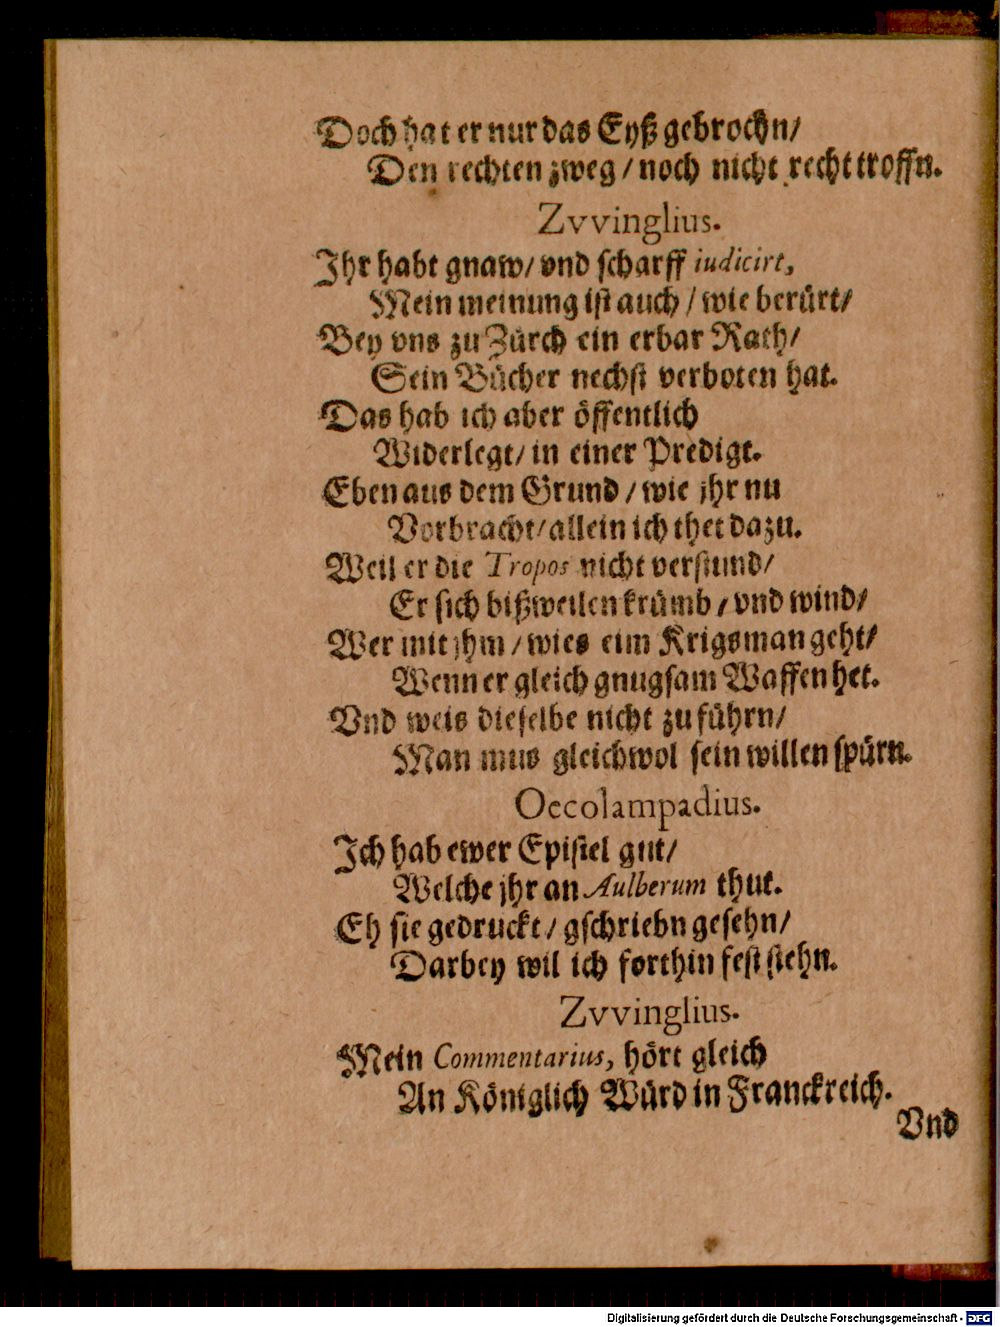 Doch hat er nur das Eyß gebrochn/
Den rechten zweg/ noch nicht recht troffn.
Zvvinglius.
Ihr habt gnaw/ vnd scharff iudicirt,
Mein meinung ist auch/ wie berürt/
Bey vns zu Zürch ein erbar Rath/
Sein Bücher nechst verboten hat.
Das hab ich aber öffentlich
Widerlegt/ in einer Predigt.
Eben aus dem Grund/ wie jhr nu
Vorbracht/ allein ich thet dazu.
Weil er die Tropos nicht verstund/
Er sich bißweilen krümb/ vnd wind/
Wer mit jhm/ wies eim Krigsman geht/
Wenn er gleich gnugsam Waffen het.
Vnd weis dieselbe nicht zu führn/
Man mus gleichwol sein willen spürn.
Oecolampadius.
Ich hab ewer Epistel gut/
Welche jhr an Aulberum thut.
Eh sie gedruckt/ gschriebn gesehn/
Darbey wil ich forthin fest stehn.
Zvvinglius.
Mein Commentarius, hört gleich
An Königlich Würd in Franckreich.
Vnd
Digitalisierung gefördert durch die Deutsche Forschungsgemeinschaft - DFG